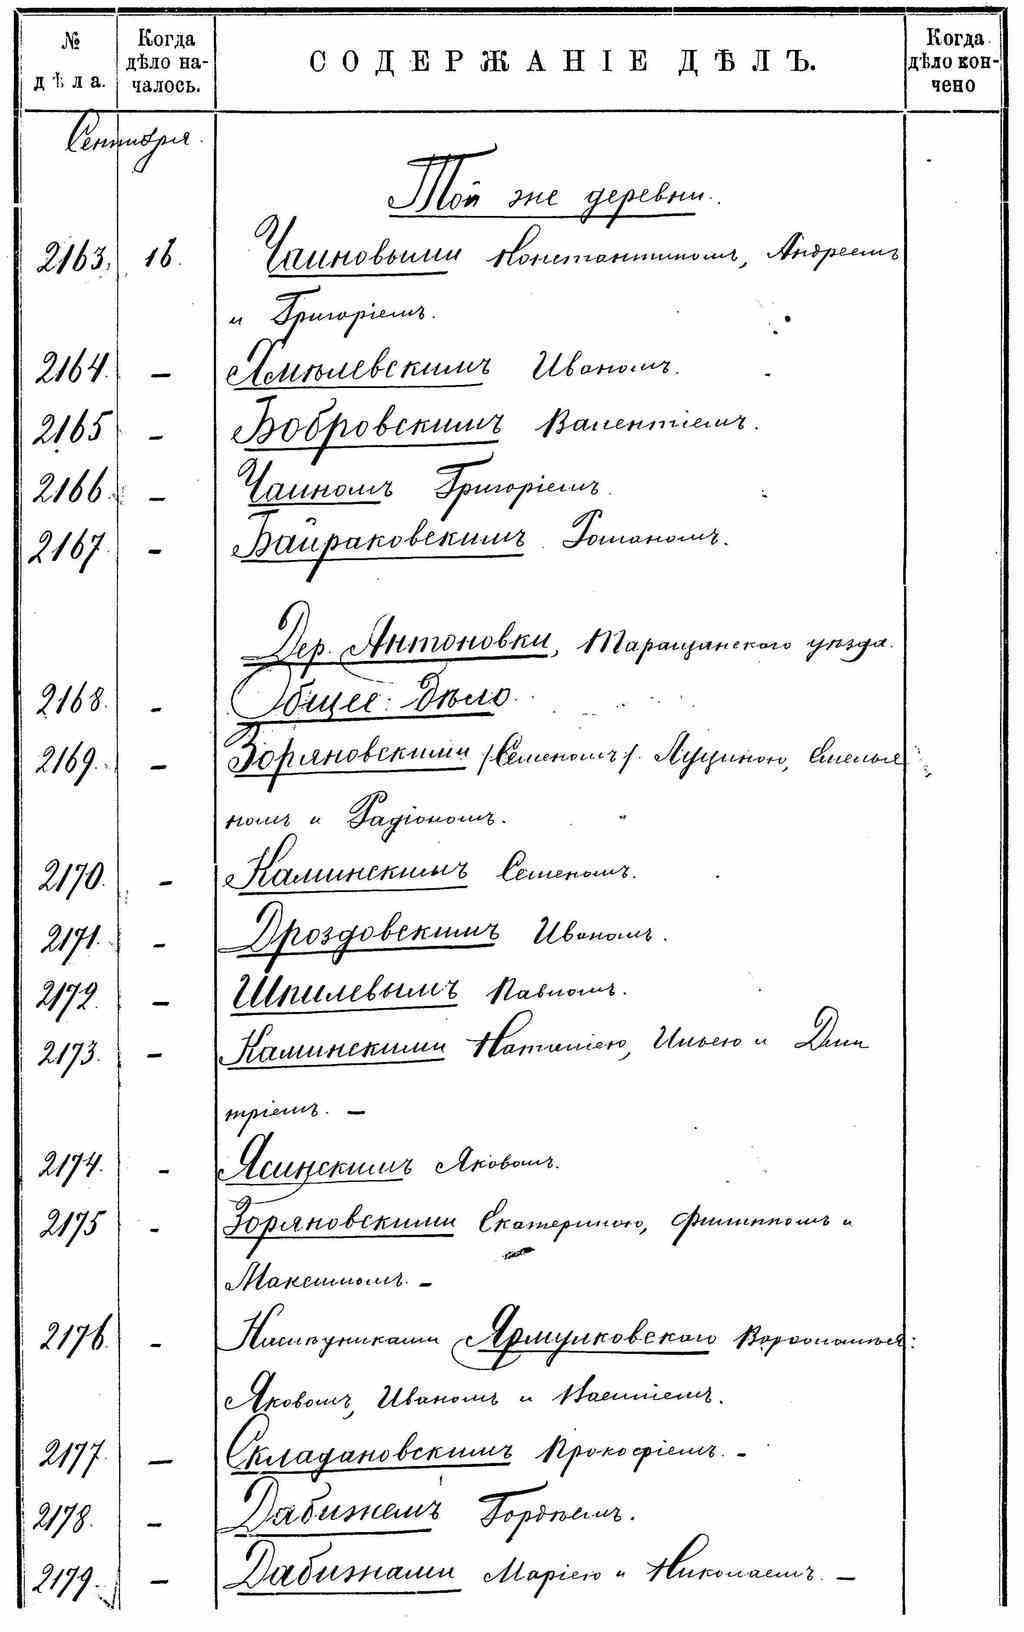 № дѣла.
Когда дѣло началось.
СОДЕРЖАНІЕ ДѢЛЪ.
Когда дѣло кончено
Сентября.
Той же деревни.
2163. 16. Чаиновыми Константиномъ, Андреемъ
и Григоріемъ.
2164. — Хмѣлевскимъ Иваномъ.
2165 — Бобровскимъ Валентіемъ.
2166. — Чаиномъ Григоріемъ.
2167. — Байраковскимъ Романомъ.
Дер. Антоновки, Таращанскаго уѣзда.
2168. — Общее дѣло.
2169. — Зоряновскими /Семеномъ/. Луциною, Емелья
номъ и Радіономъ.
2170. — Каминскимъ Семеномъ.
2171. — Дроздовскимъ Иваномъ.
2172. — Шпилевымъ Павломъ.
2173. — Каминскими Наталіею, Ильею и Дми
тріемъ. —
2174. — Ясинскимъ Яковомъ.
2175 — Зоряновскими Екатериною, Филиппомъ и
Максимомъ. —
2176. — Наслѣдниками Ярмулковскаго
Яковомъ, Иваномъ и
2177. — Складановскимъ Прокофіемъ. —
2178. — Дабижемъ Гордѣемъ.
2179. — Дабижами Маріею и Николаемъ. —